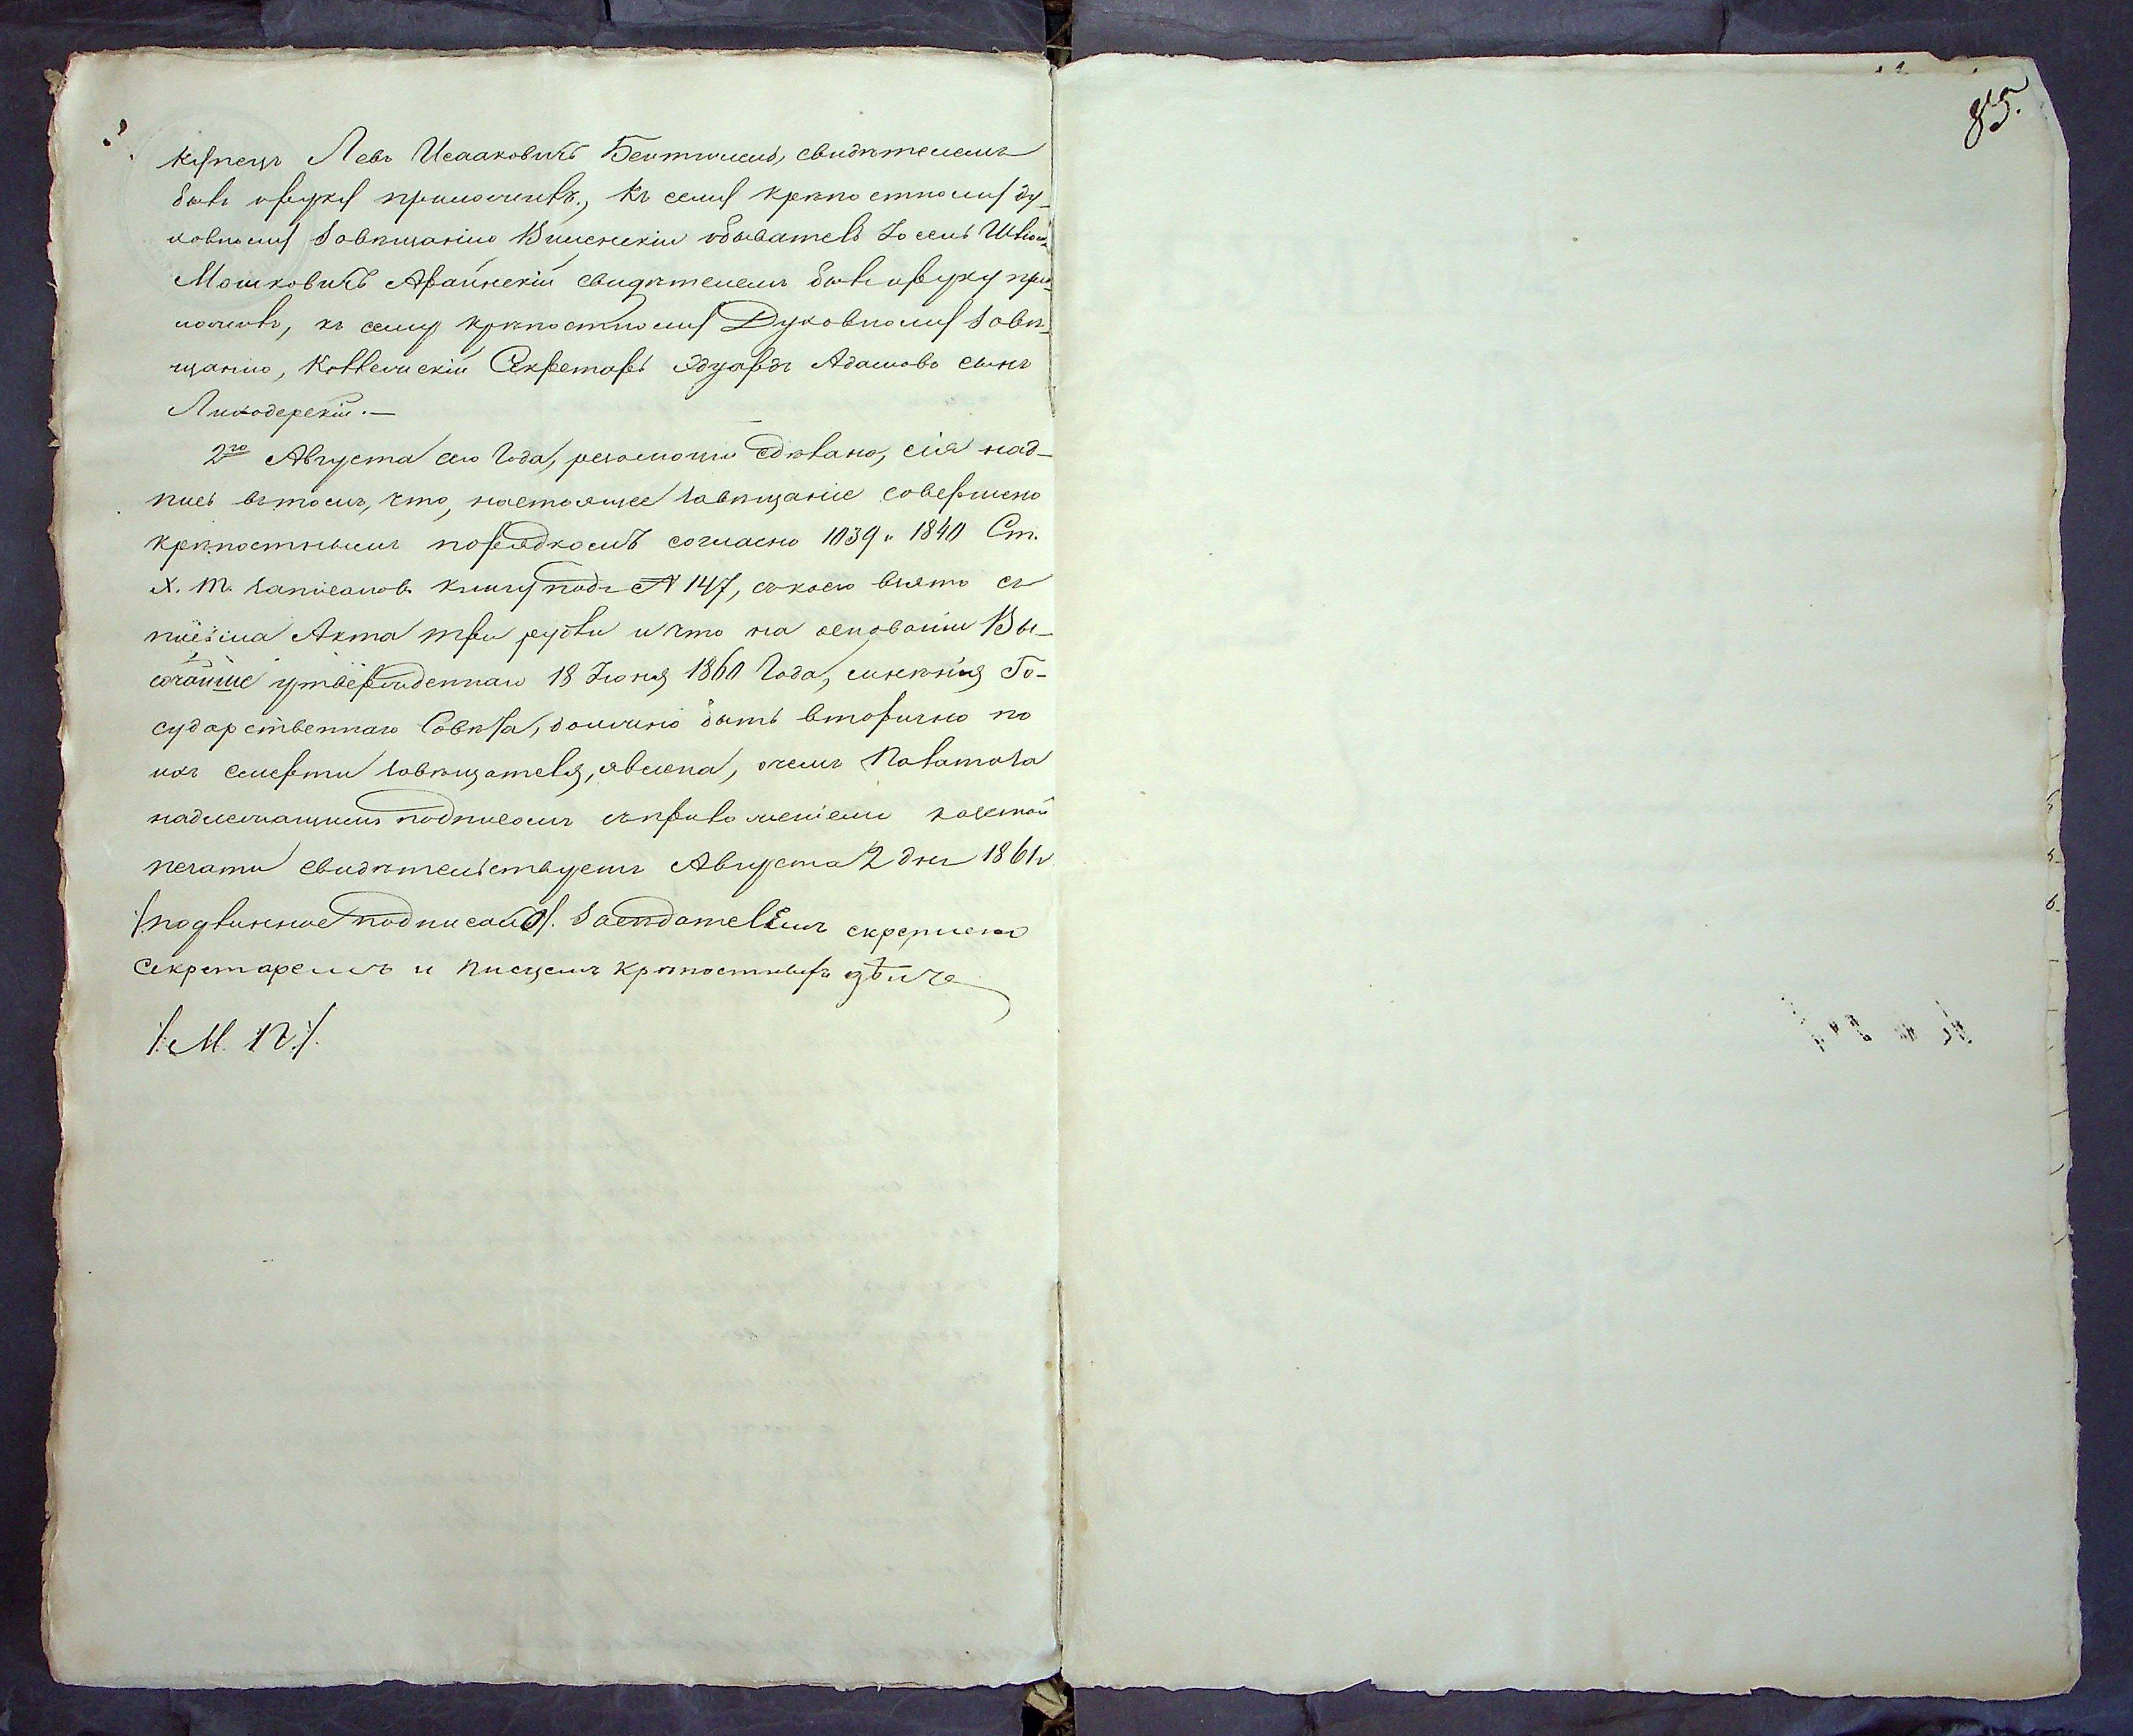 85.
купецъ Левъ Исааковичъ свидѣтелемъ
былъ и руку приложилъ., Къ сему крѣпостному ду-
ховному Завѣщанію Виленскій обыватель Іосель
Мошковичъ свидѣтелемъ былъ и руку при-
ложилъ, къ сему крѣпостному Духовному Завѣ-
щанію, Коллежскій Секретарь Эдуардъ Адамовъ сынъ
2го Августа сего Года, сдѣлано, сія над-
пись въ томъ, что, настоящее завѣщаніе совершено
крѣпостнымъ порядкомъ согласно 1039 и 1840 Ст.
X. Т. записанов. книгу подъ № 147, съ коего взято съ
письма Акта три рубли и что на основаніи Вы-
сочайше утвержденнаго 18 Іюня 1860 Года, мнѣнія Го-
сударственнаго Совѣта, должно быть вторично по
ихъ смерти завѣщателя, явлена, о чемъ Палата за
надлежащимъ подписомъ съ приложеніемъ казенной
печати свидѣтельствуетъ Августа 2 дня 1861 г
/:подлинное подписалъ:/. Засѣдателемъ скрѣплено
Секретаремъ и писцемъ крѣпостныхъ дѣлъ
/:М. П:/.